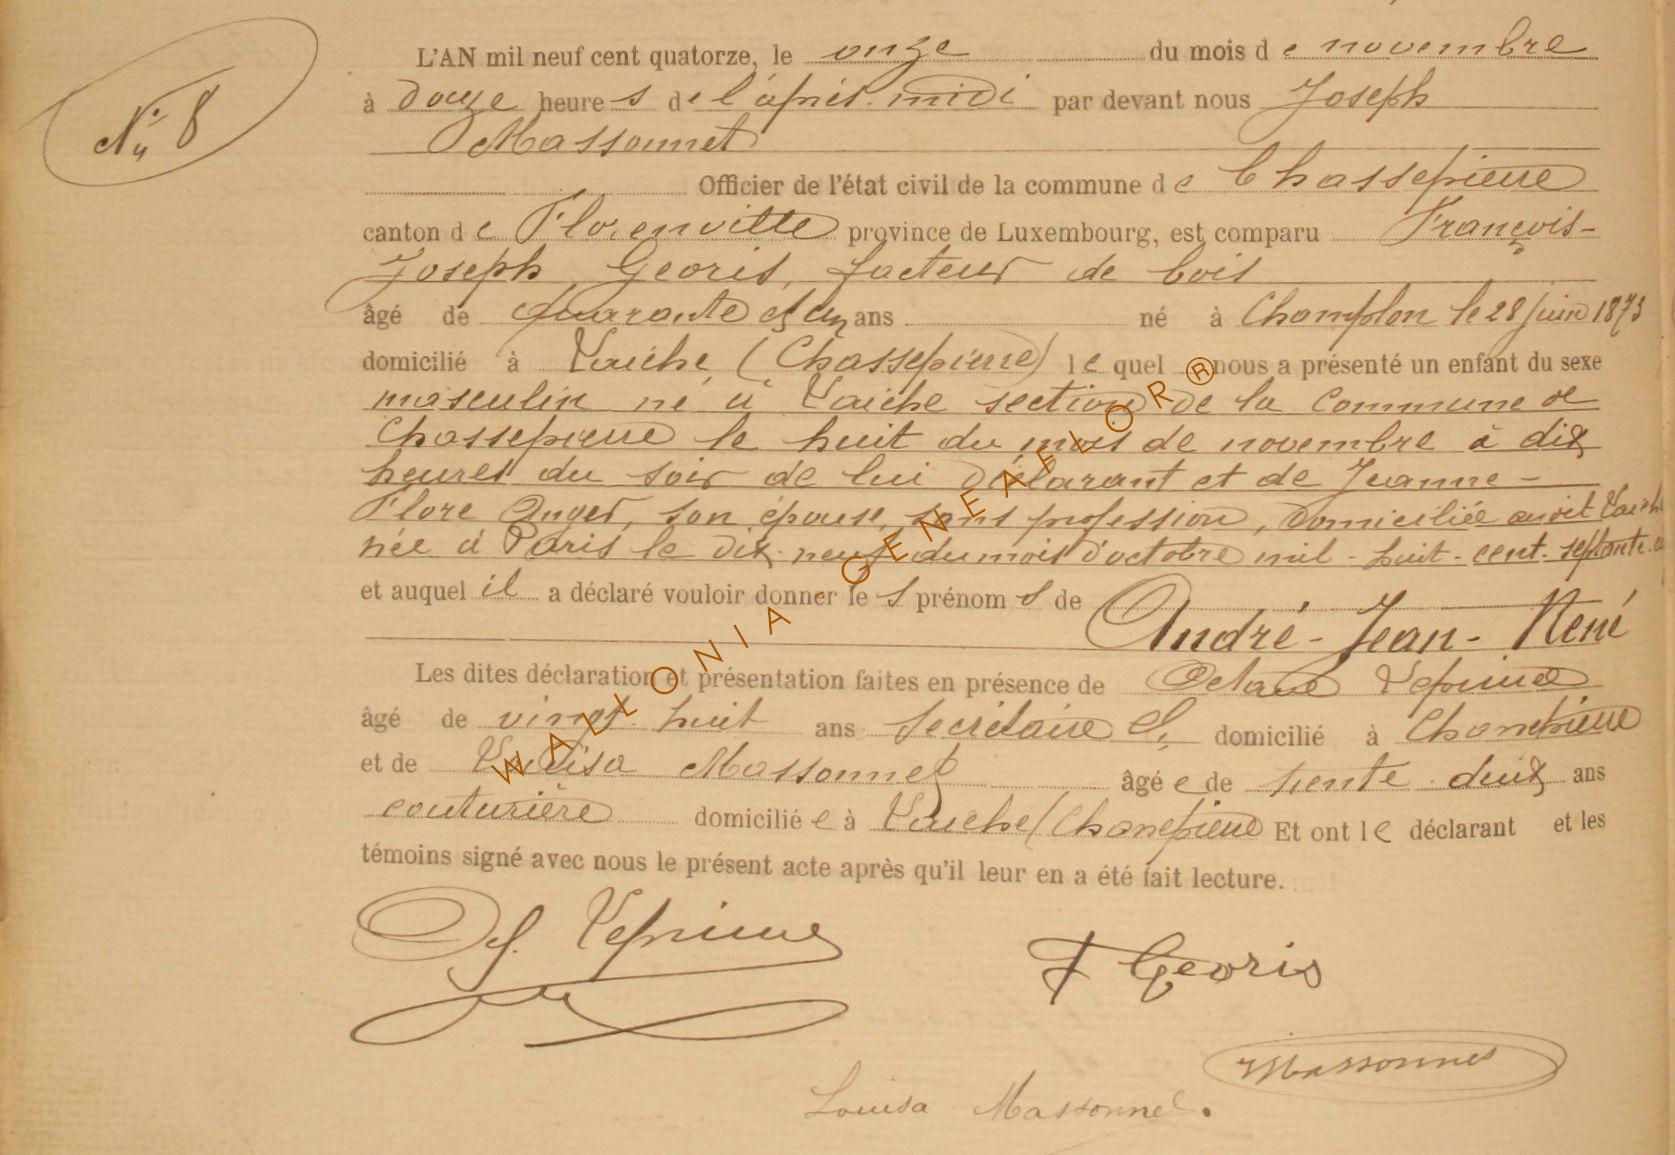 N° 8
L'AN mil neuf cent quatorze, le onze du mois de novembre
à douze heures de l'après-midi par devant nous Joseph
Massonnet
Officier de l'état civil de la commune de Chassepierre
canton de Florenville province de Luxembourg, est comparu François-
Joseph Georis, facteur de bois
âgé de quarante et un ans né à Champlon le 28 juin 1873
domicilié à Laiche (Chassepierre) lequel nous a présenté un enfant du sexe
masculin né à Laiche section de la commune de
Chassepierre le huit du mois de novembre à dix
heures du soir de lui déclarant et de Jeanne-
Flore Anger, son épouse, sans profession, domiciliée Laiche
née à Paris le dix-neuf du mois d'octobre mil-huit-cent-septante
et auquel il a déclaré vouloir donner les prénoms de
André-Jean-René
Les dites déclaration et présentation faites en présence de Octave Lepineux
âgé de vingt huit ans secrétaire Cl, domicilié à Chassepierre
et de Louisa Massonnet âgée de trente deux ans
couturière domiciliée à Laiche (Chassepierre) Et ont le déclarant et les
témoins signé avec nous le présent acte après qu'il leur en a été fait lecture.
F Georis
Massonnet
Louisa Massonnet.
WALLONIA - GENEAFLOR ®